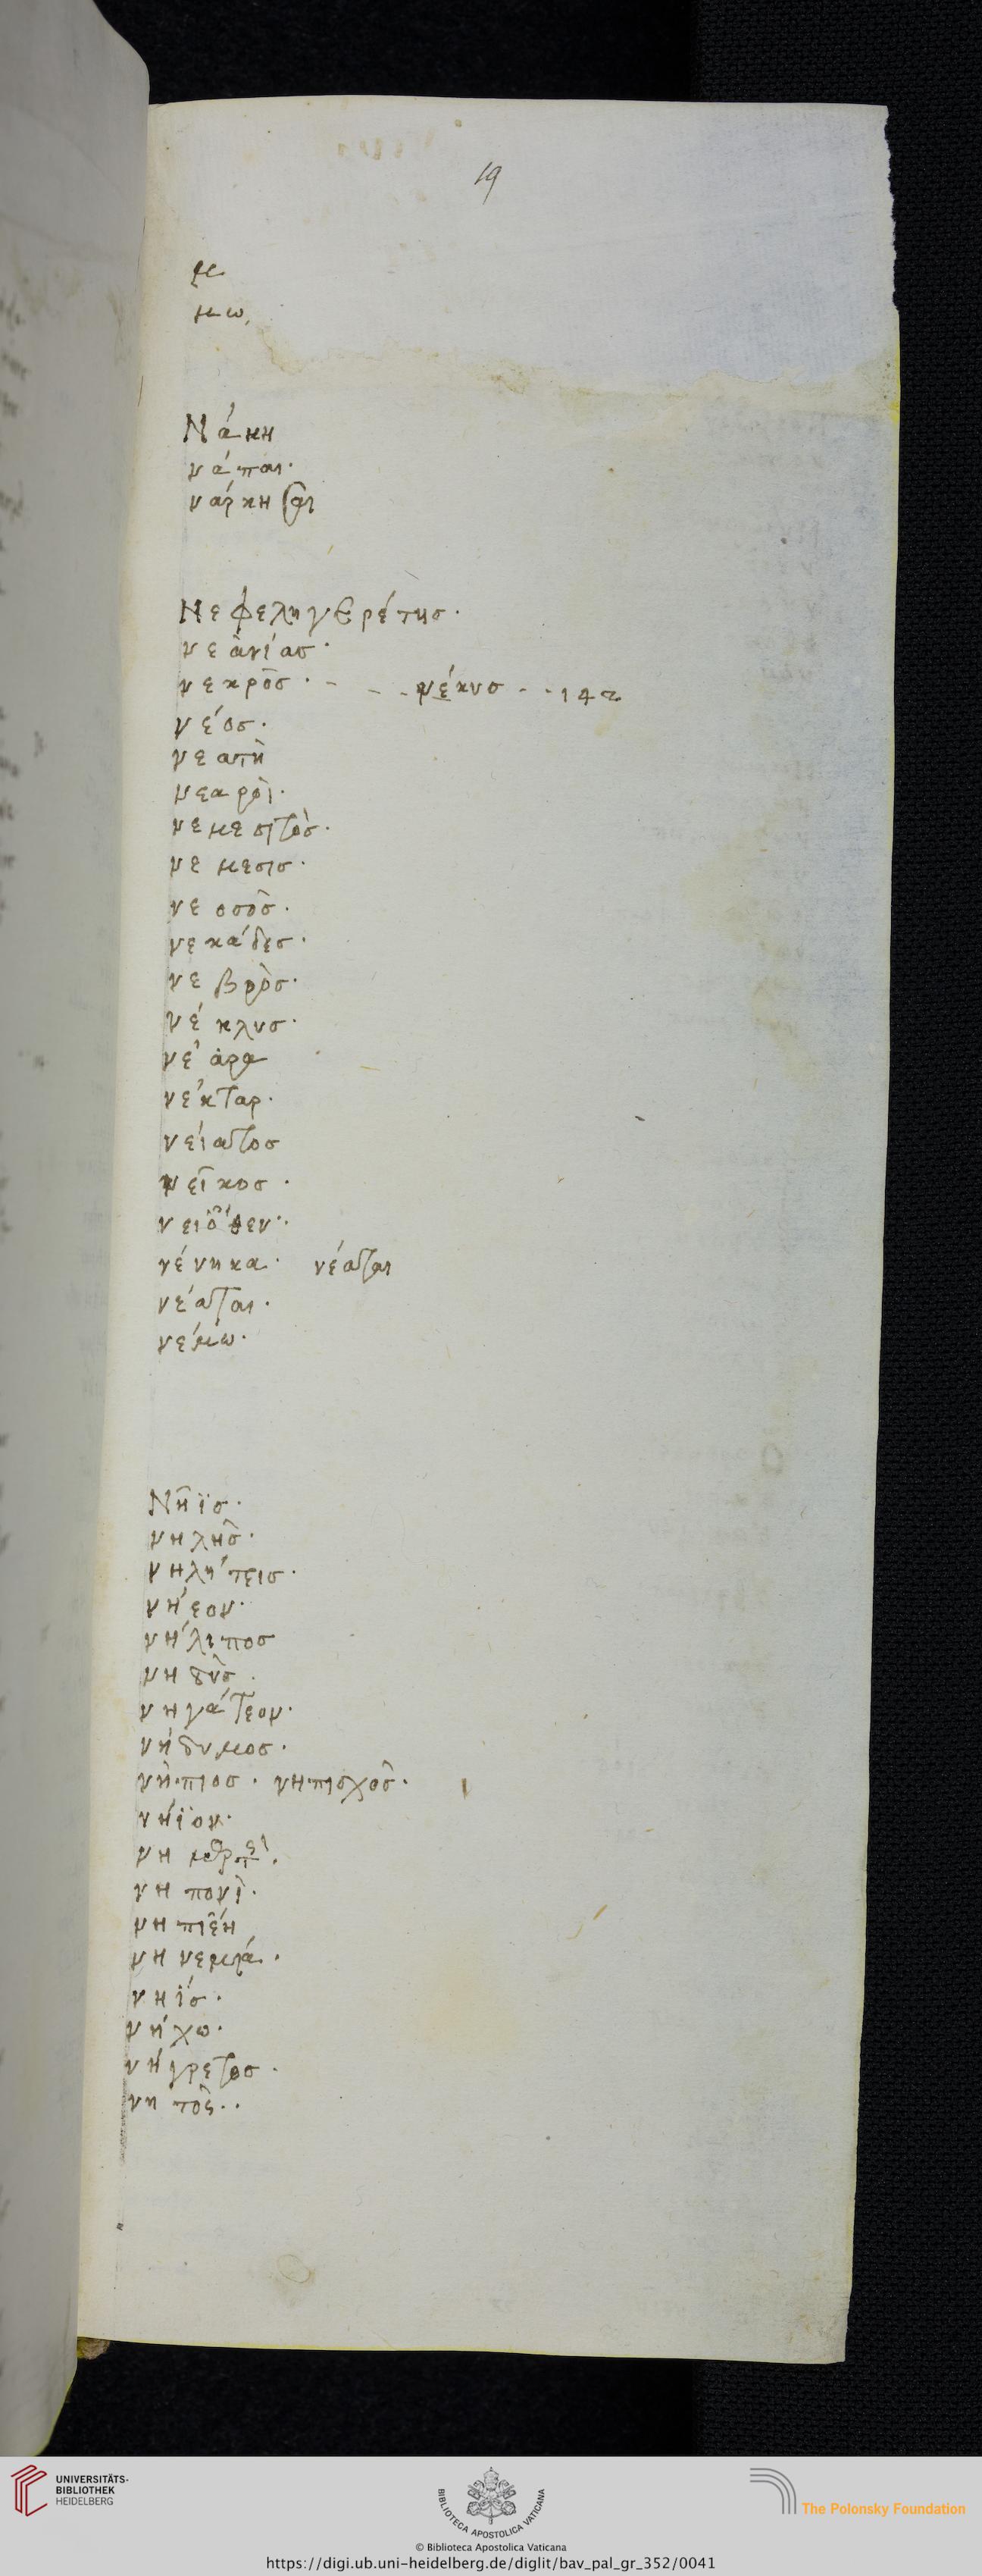 19
με
μω,
Νάκη
νάπαι·
ναρκη
Νεφεληγερέτησ·
νεανίασ·
νεκρὸσ· - - - νέκυσ - - 142
νέοσ·
νεαπὴ
νεαροὶ·
νεμεσιτὸσ·
νεμεσισ·
νεοσσὸσ·
νεκάδεσ·
νεβρὸσ·
νέκλυσ·
νέαρα
νέκταρ·
νείατοσ
νεῖκοσ·
νειόθεν·
νένηκα· νέαται
νέαται·
νέμω·
Νηῒσ·
νηλὴσ·
νηλήτεισ·
νήεον·
νήλιποσ
νηδὺσ·
νηγάτεον·
νήδυμοσ·
νήπιοσ· νηπιαχὸσ·
νήϊον·
νημερτὲσ·
νηπονὶ·
νηπιέη
νηνεμία·
νηΐσ·
νήχω·
νήγρετοσ·
UNIVERSITÄTS-
BIBLIOTHEK
HEIDELBERG
BIBLIOTECA APOSTOLICA VATICANA
The Polonsky Foundation
© Biblioteca Apostolica Vaticana
https://digi.ub.uni-heidelberg.de/diglit/bav_pal_gr_352/0041